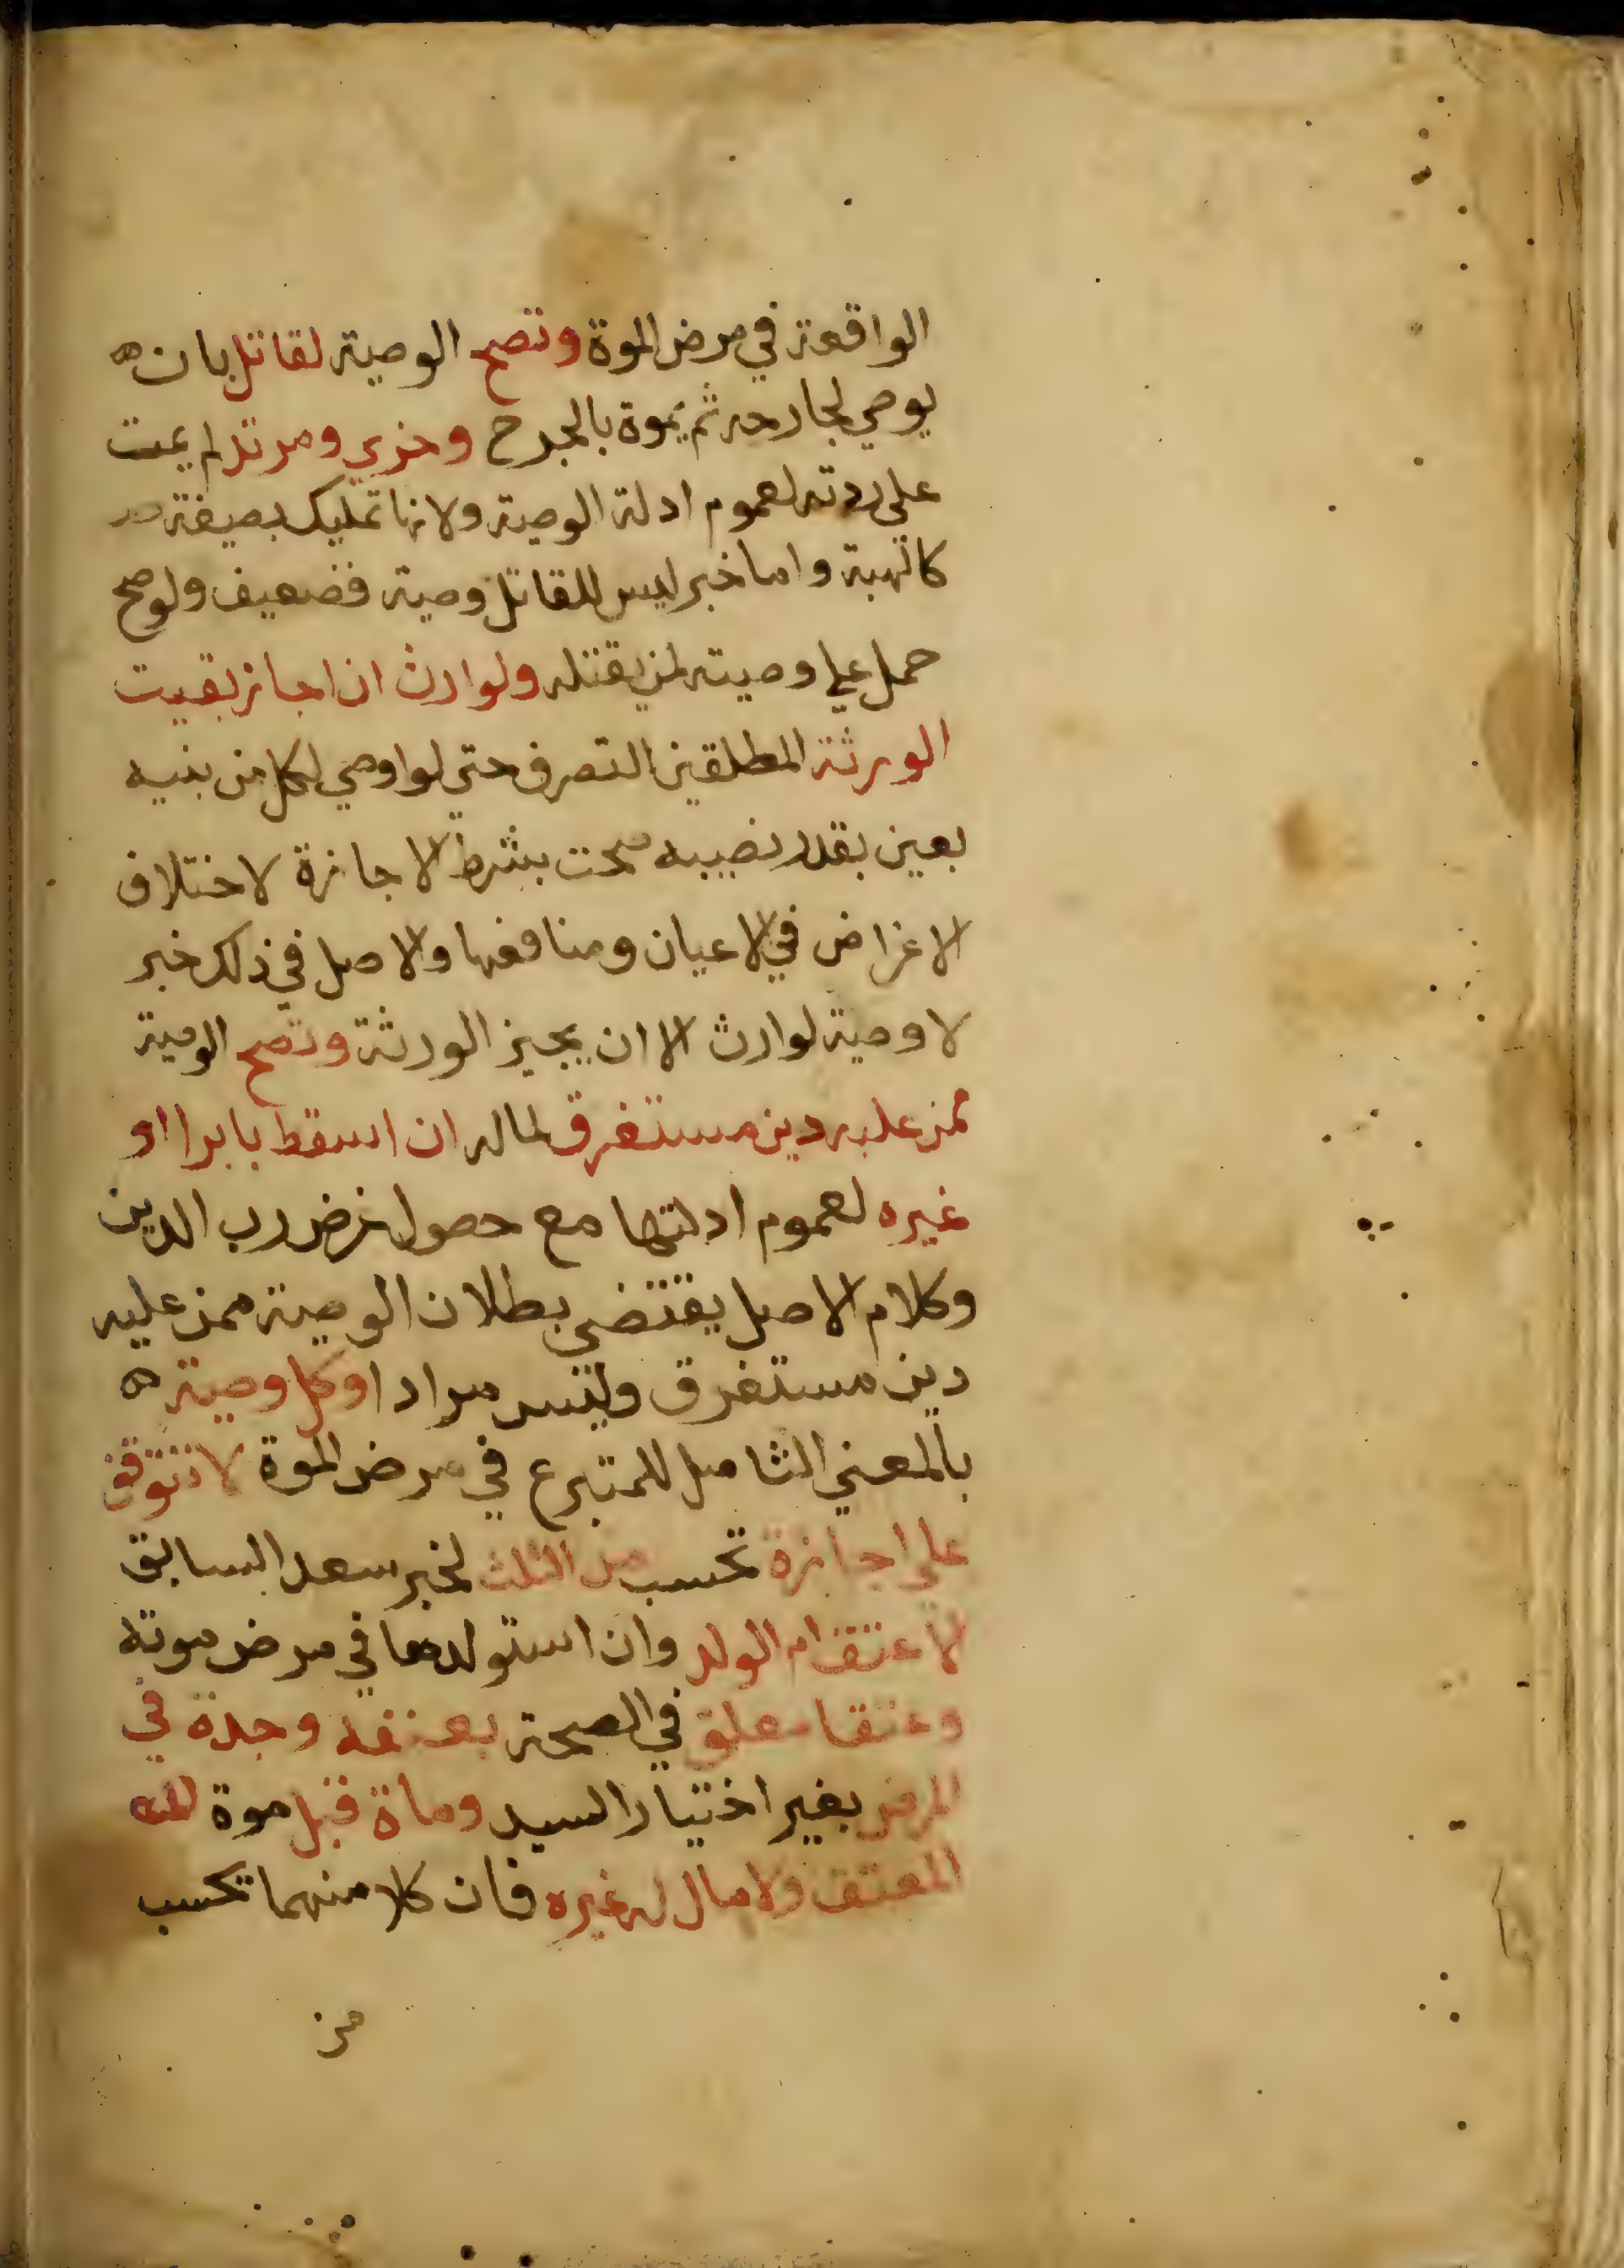 الواقعة في مرض الموة وتصح الوصية لقاتل بان
يوصي لجارحه ثم يموة بالجرح وحربي ومرتد لم يمت
علي ردته لعموم ادلة الوصية ولانها تمليك بصيغة
كالهبة واما خبر ليس للقاتل وصية فضعيف ولو صح
حمل علي وصيته لمن يقتله ولوارث ان اجاز بقيت
الورثة المطلقين التصرف حتي لو اوصي لكل من بنيه
بعين بقدر نصيبه صحت بشرط الاجازة لاختلاف
الاغراض في الاعيان ومنافعها والاصل في ذلك خبر
لا وصية لوارث الا ان يجيز الورثة وتصح الوصية
ممن عليه دين مستغرق لماله ان اسقط بابرا او
غيره لعموم ادلتها مع حصول غرض رب الدين
وكلام الاصل يقتضي بطلان الوصية ممن عليه
دين مستغرق وليس مرادا وكل وصية
بالمعني الشامل للمتبرع في مرض الموة لا تتوقف
علي اجازة تحسب من الثلث لخبر سعد السابق
لا عتق ام الولد وان استولدها في مرض موته
وعتقا معلق في الصحة بصفة وجدة في
المرض بغير اختيار السيد وماة قبل موة
المعتق ولا مال له غيره فان كلا منهما تحسب
من